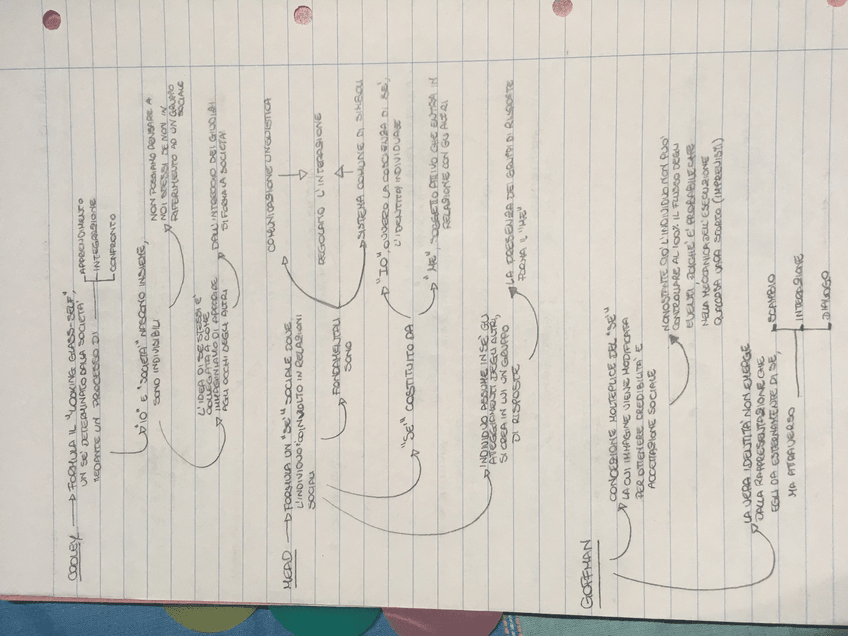 COOLEY → FORMULA IL "LOOKING GLASS-SELF",
UN SE' DETERMINATO DALLA SOCIETA'
MEDIANTE UN PROCESSO DI
APPRENDIMENTO
INTEGRAZIONE
CONFRONTO
"IO" E "SOCIETA'" NASCONO INSIEME,
SONO INDIVISIBILI
NON POSSIAMO PENSARE A
NOI STESSI SE NON IN
RIFERIMENTO AD UN GRUPPO
SOCIALE
L'IDEA DI SE STESSI E'
COLLEGATA A COME
IMMAGINIAMO DI APPARIRE
AGLI OCCHI DEGLI ALTRI
DALL'INTRECCIO DEI GIUDIZI
SI FORMA LA SOCIETA'
MEAD → FORMULA UN "SE'" SOCIALE DOVE
L'INDIVIDUO COINVOLTO IN RELAZIONI
SOCIALI
FONDAMENTALI
SONO
COMUNICAZIONE LINGUISTICA
REGOLANO L'INTERAZIONE
SISTEMA COMUNE DI SIMBOLI
"SE'" COSTITUITO DA
"IO", OVVERO LA COSCIENZA DI SE',
L'IDENTITA' INDIVIDUALE
"ME", SOGGETTO ATTIVO CHE ENTRA IN
RELAZIONE CON GLI ALTRI
INDIVIDUO ASSUME IN SE' GLI
ATTEGGIAMENTI DEGLI ALTRI,
SI CREA IN LUI UN GRUPPO
DI RISPOSTE
LA PRESENZA DEI GRUPPI DI RISPOSTE
FORMA IL "ME"
GOFFMAN
CONCEZIONE MOLTEPLICE DEL "SE'"
LA CUI IMMAGINE VIENE MODIFICATA
PER OTTENERE CREDIBILITA' E
ACCETTAZIONE SOCIALE
NONOSTANTE CIO' L'INDIVIDUO NON PUO'
CONTROLLARE AL 100% IL FLUSSO DEGLI
EVENTI, POICHE' E' PROBABILE CHE
NELLA MECCANICA DELL'ESECUZIONE
QUALCOSA VADA STORTO (IMPREVISTI)
LA VERA IDENTITA' NON EMERGE
DALLA RAPPRESENTAZIONE CHE
EGLI DA ESTERNAMENTE DI SE',
MA ATTRAVERSO
SCAMBIO
INTERAZIONE
DIALOGO